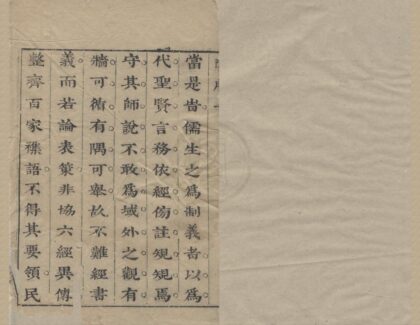 當是旹儒生之爲制義者以爲
代聖賢言務依經傍註規規焉
守其師說不敢爲域外之觀有
牆可循有隅可舉故不離經書
義而若論表策非協六經異傳
整齊百家襍語不得其要領民